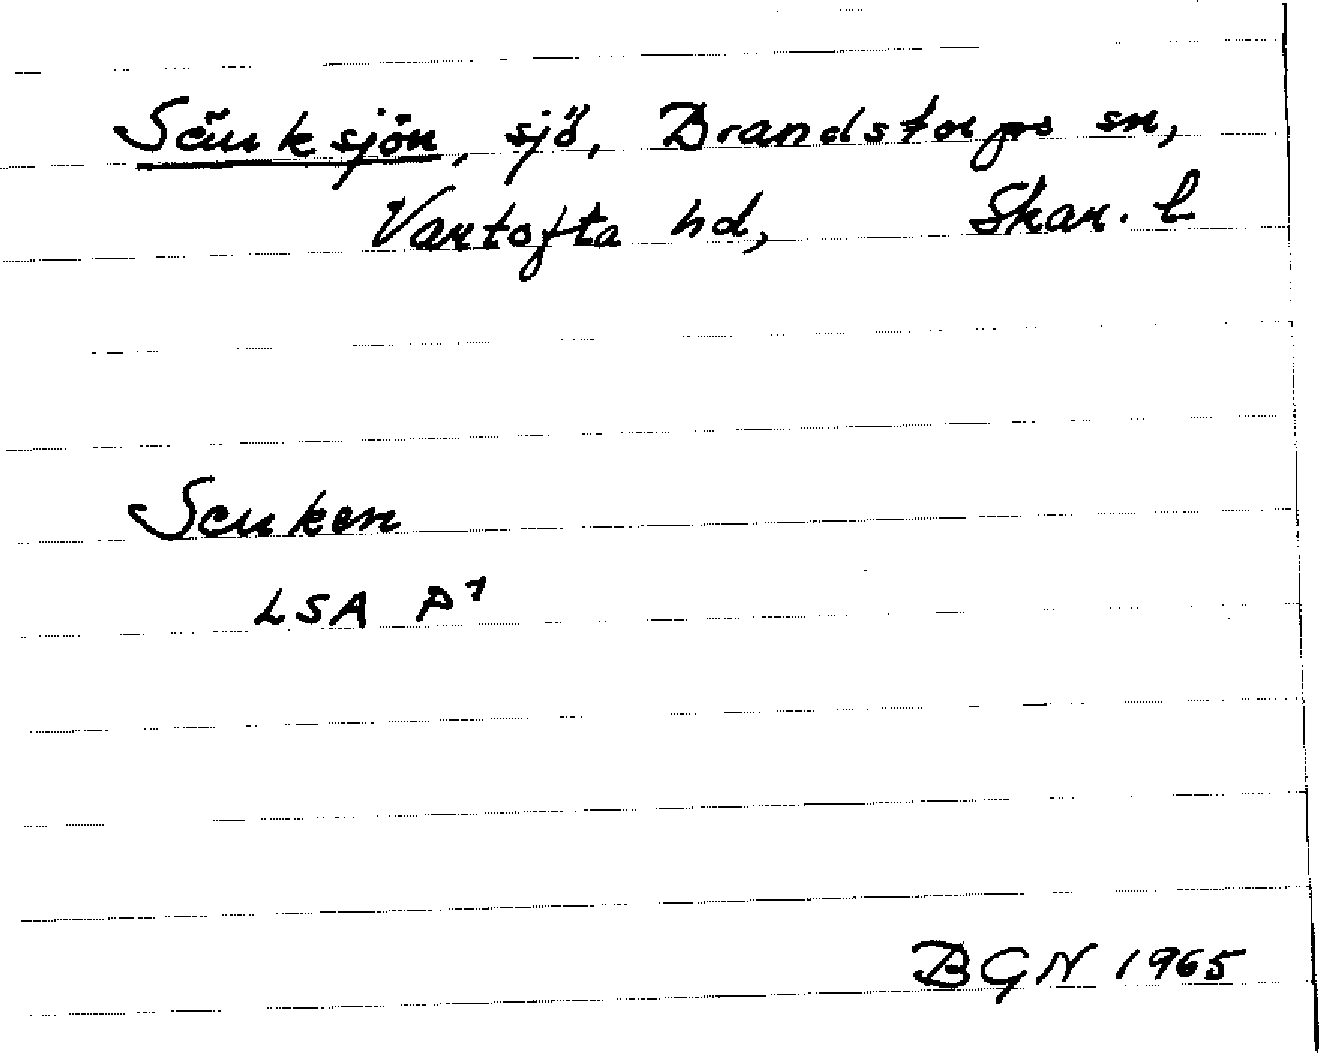 Sänksjön, sjö, Brandstorps sn,
Vartofta hd, Skar. l
Senken
LSA P7
BGN 1965